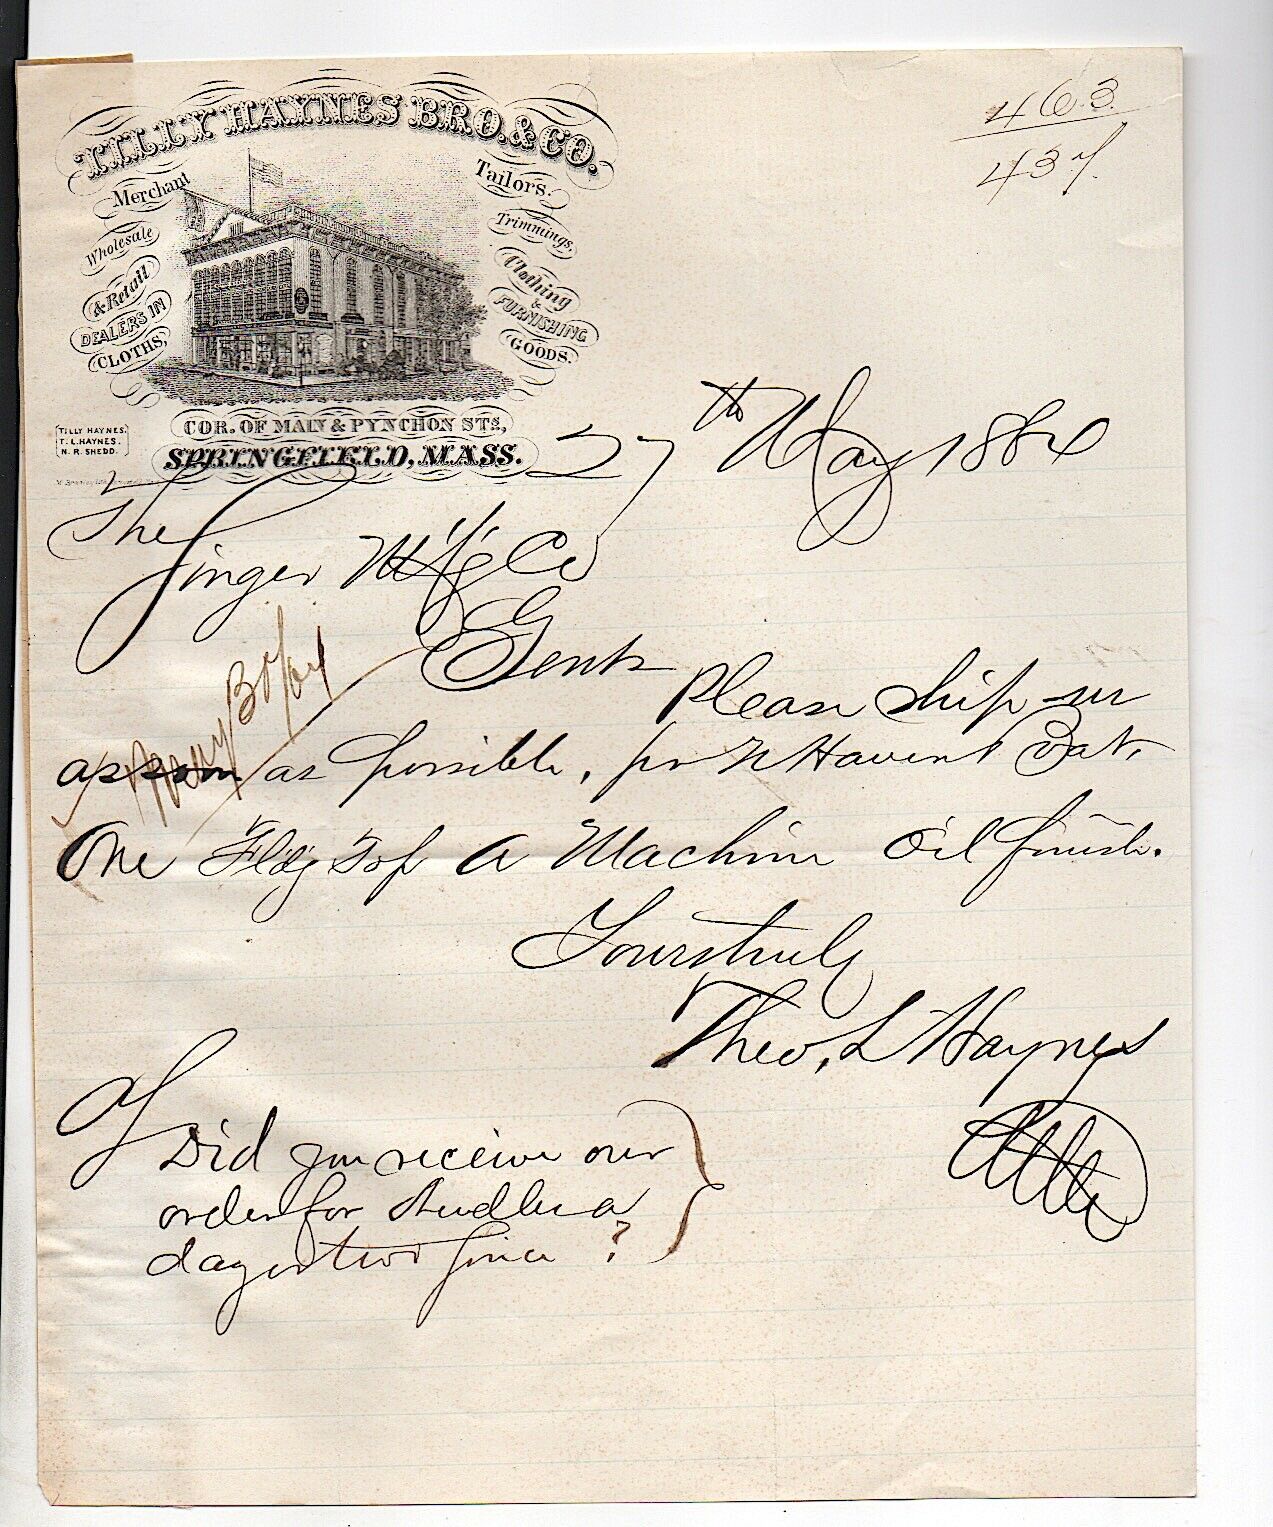 TILLY HAYNES BRO. & CO.
Merchant Tailors.
Wholesale
& Retail
DEALERS IN
CLOTHS,
Trimmings,
Clothing
&
FURNISHING
GOODS.
COR. OF MAIN & PYNCHON STS,
SPRINGFIELD, MASS.
TILLY HAYNES.
T. L. HAYNES.
N. R. SHEDD.
463
437.
27th May 1864
The
Singer M'f'g Co
Gents
Please ship us
as soon as possible, pr N Haven Boat,
One Fld'g Top A Machine Oil finish.
Yours truly
Theo. L Haynes
Did you receive our
order for Needles a
day or two since ?